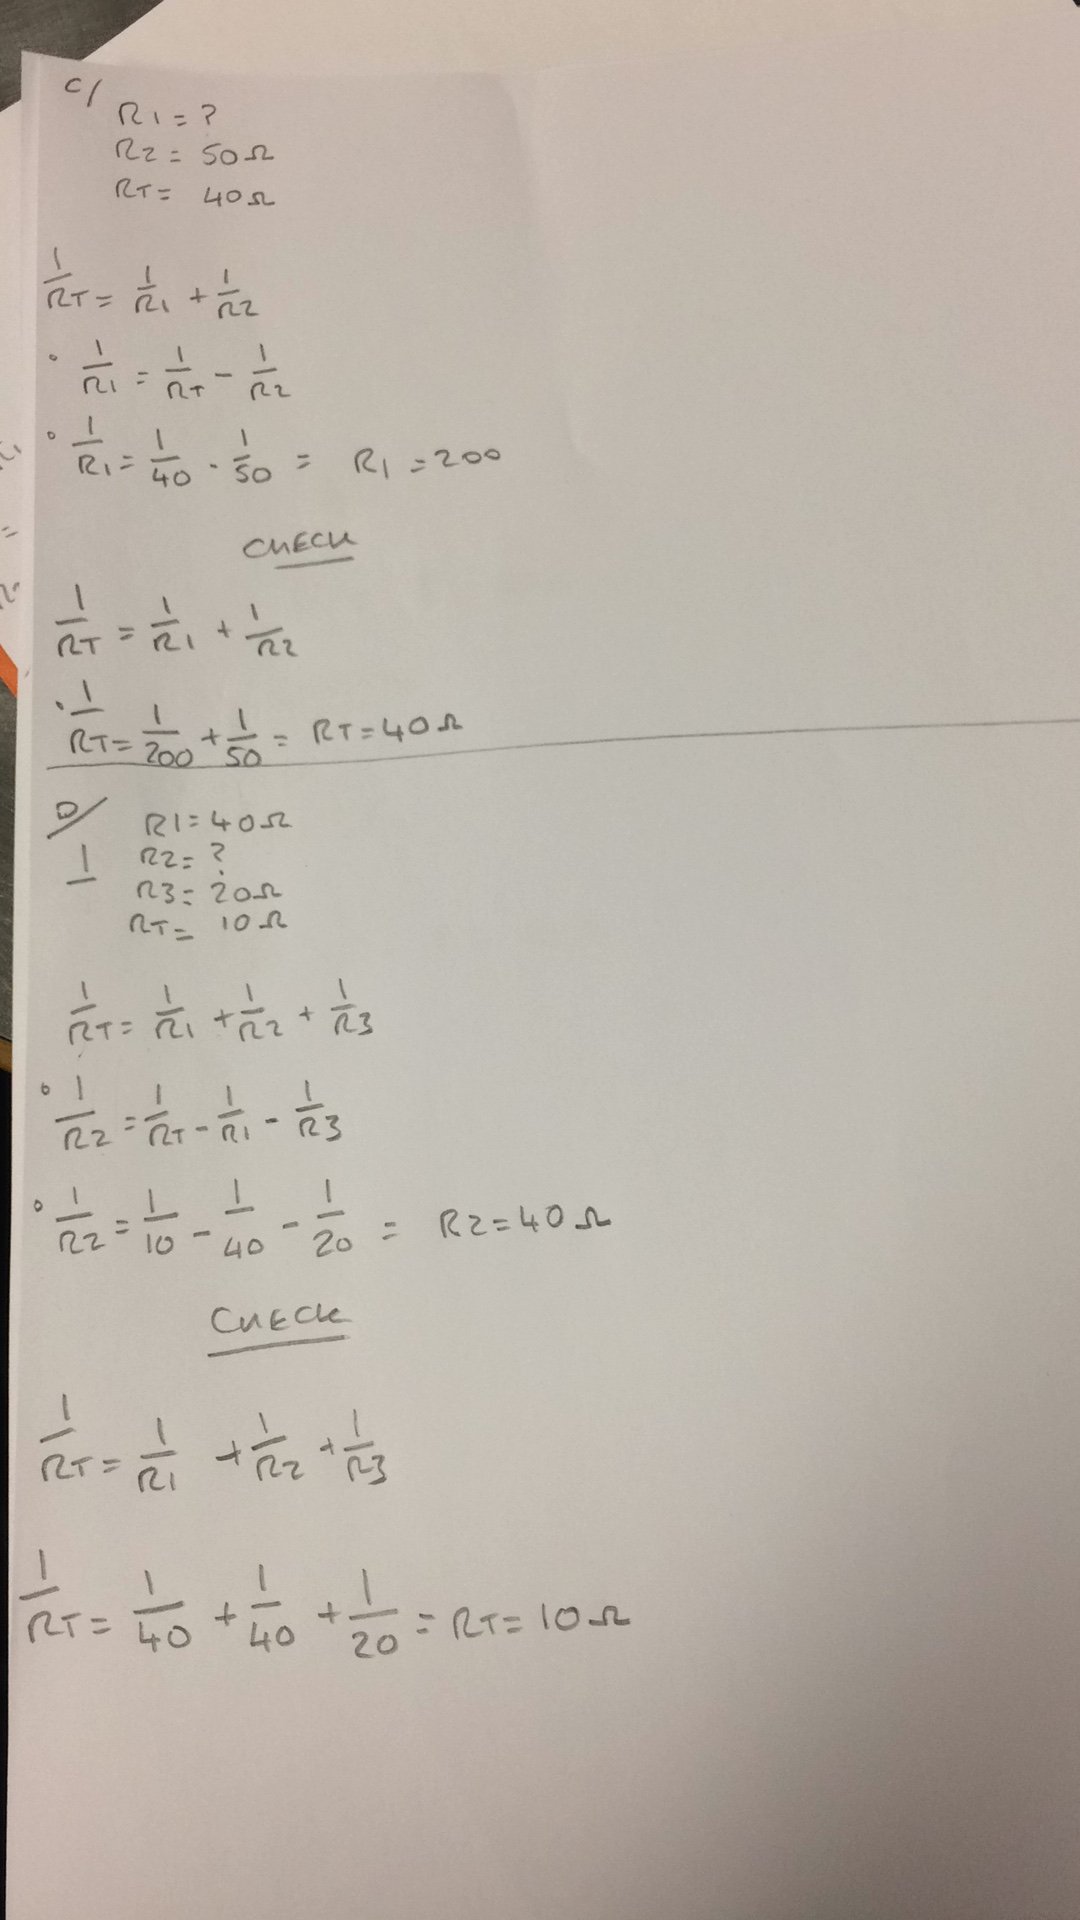 C/
R1 = ?
R2 = 50Ω
RT = 40Ω
1/RT = 1/R1 + 1/R2
° 1/R1 = 1/RT - 1/R2
° 1/R1 = 1/40 - 1/50 = R1 = 200
CHECK
1/RT = 1/R1 + 1/R2
. 1/RT = 1/200 + 1/50 = RT = 40Ω
D/ R1 = 40Ω
1 R2 = ?
R3 = 20Ω
RT = 10Ω
1/RT = 1/R1 + 1/R2 + 1/R3
° 1/R2 = 1/RT - 1/R1 - 1/R3
° 1/R2 = 1/10 - 1/40 - 1/20 = R2 = 40Ω
CHECK
1/RT = 1/R1 + 1/R2 + 1/R3
1/RT = 1/40 + 1/40 + 1/20 = RT = 10Ω